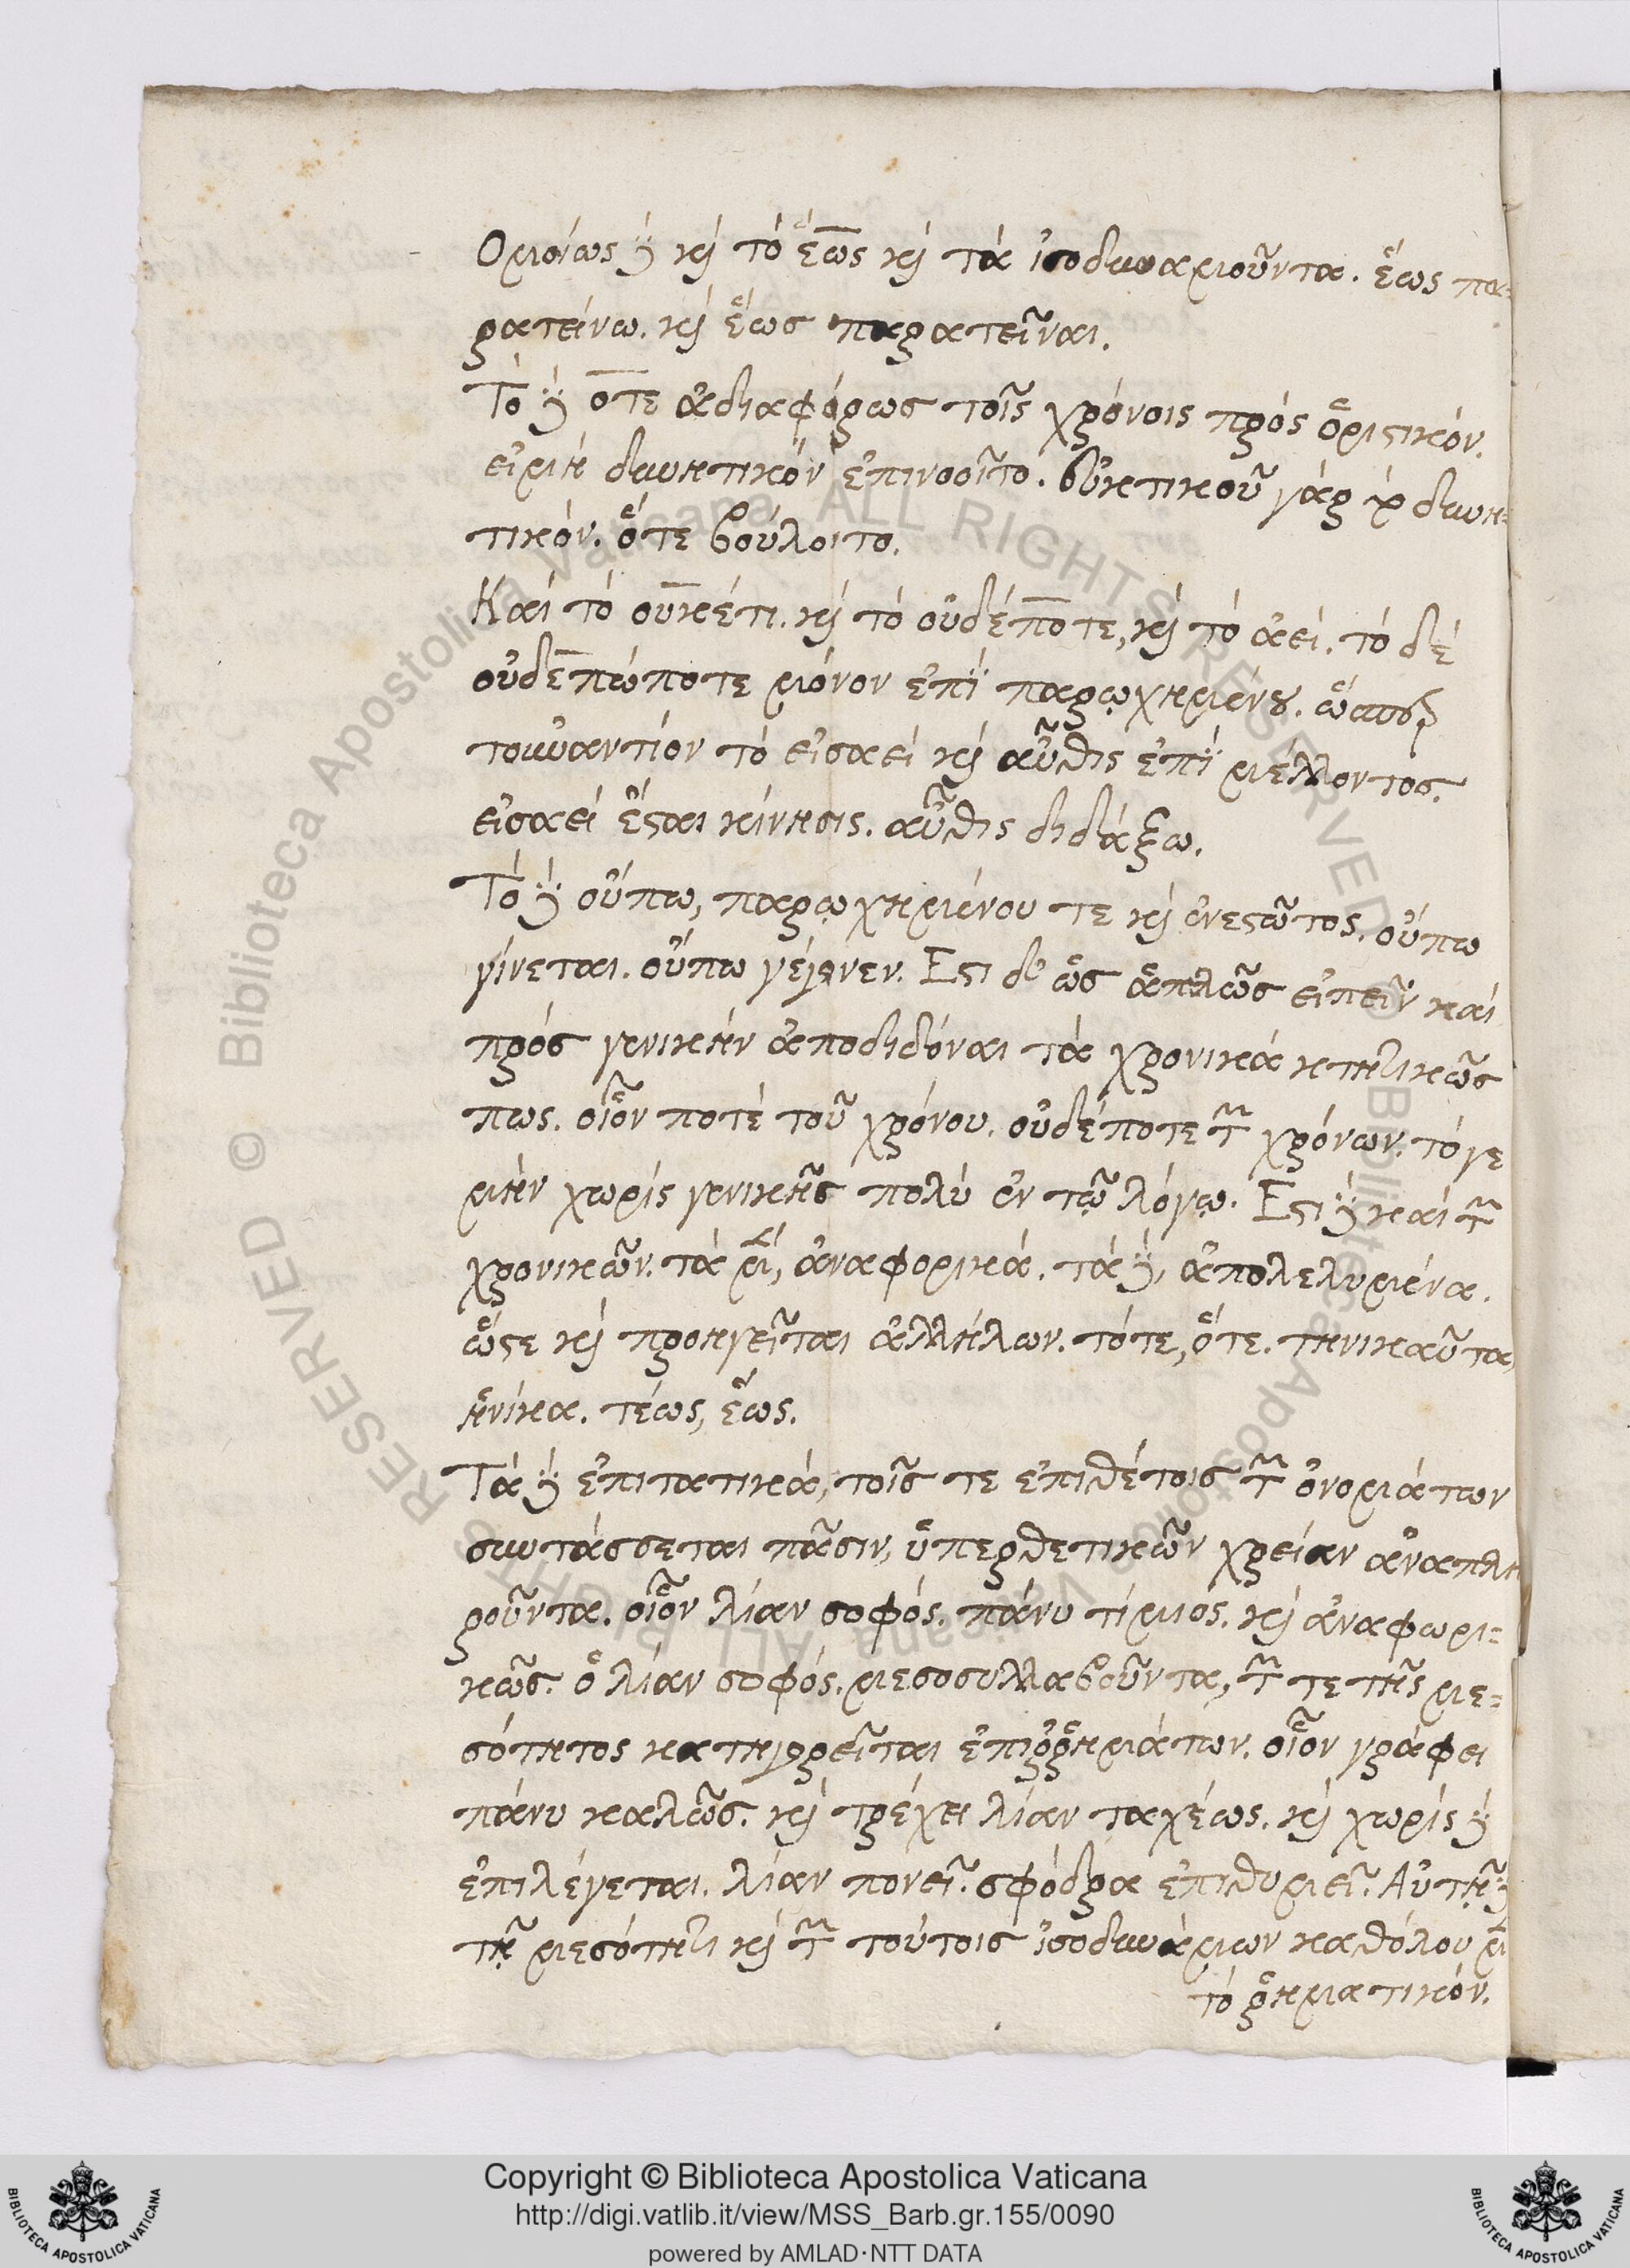 Ὁμοίως δὲ καὶ τὸ ἕως καὶ τὰ ἰσοδυναμοῦντα. ἕως πα-
ρατείνω. καὶ ἕως παρατεῖναι.
Τὸ δὲ ὅτε ἀδιαφόρως τοῖς χρόνοις πρὸς ὁριστικόν.
εἰμὴ δυνητικὸν ἐπινοοῖτο. εὐκτικοῦ γὰρ δυνη-
τικόν. ὅτε βούλοιτο.
Καὶ τὸ οὐκέτι. καὶ τὸ οὐδέποτε, καὶ τὸ ἀεί. τὸ δὲ
οὐδεπώποτε μόνον ἐπὶ παρῳχημένου. ὥσπερ
τοὐναντίον τὸ εἰσαεὶ καὶ αὖθις ἐπὶ μέλλοντος.
εἰσαεὶ ἔσται κίνησις. αὖθις διδάξω.
Τὸ δὲ οὔπω, παρῳχημένου τε καὶ ἐνεστῶτος. οὔπω
γίνεται. οὔπω γέγονεν. Ἔστι δ' ὡς ἁπλῶς εἰπεῖν καὶ
πρὸς γενικὴν ἀποδιδόναι τὰ χρονικὰ κτητικῶς
πως. οἷον ποτὲ τοῦ χρόνου. οὐδέποτε τῶν χρόνων. τό γε
μὴν χωρὶς γενικῆς πολὺ ἐν τῷ λόγῳ. Ἔστι δὲ καὶ τῶν
χρονικῶν. τὰ μὲν, ἀναφορικά. τὰ δὲ, ἀπολελυμένα.
ὥστε καὶ προηγεῖται ἀλλήλων. τότε, ὅτε. τηνικαῦτα,
ἡνίκα. τέως, ἕως.
Τὰ δὲ ἐπιτατικά, τοῖς τε ἐπιθέτοις τῶν ὀνομάτων
συντάσσεται πᾶσιν, ὑπερθετικῶν χρείαν ἀναπλη
ροῦντα. οἷον λίαν σοφός. πάνυ τίμιος. καὶ ἀναφωρι-
κῶς. ὁ λίαν σοφός. μεσοσυλλαβοῦντα, τῶν τε τῆς με-
σότητος κατηγορεῖται ἐπιῤῥημάτων. οἷον γράφει
πάνυ καλῶς. καὶ τρέχει λίαν ταχέως. καὶ χωρὶς δὲ
ἐπιλέγεται. λίαν πονεῖ. σφόδρα ἐπιθυμεῖ. Αὐτῇ δὲ
τῇ μεσότητι καὶ τῶν τούτοις ἰσοδυνάμων καθόλου μὲν
τὸ ῥηματικόν.
Copyright © Biblioteca Apostolica Vaticana
http://digi.vatlib.it/view/MSS_Barb.gr.155/0090
powered by AMLAD·NTT DATA